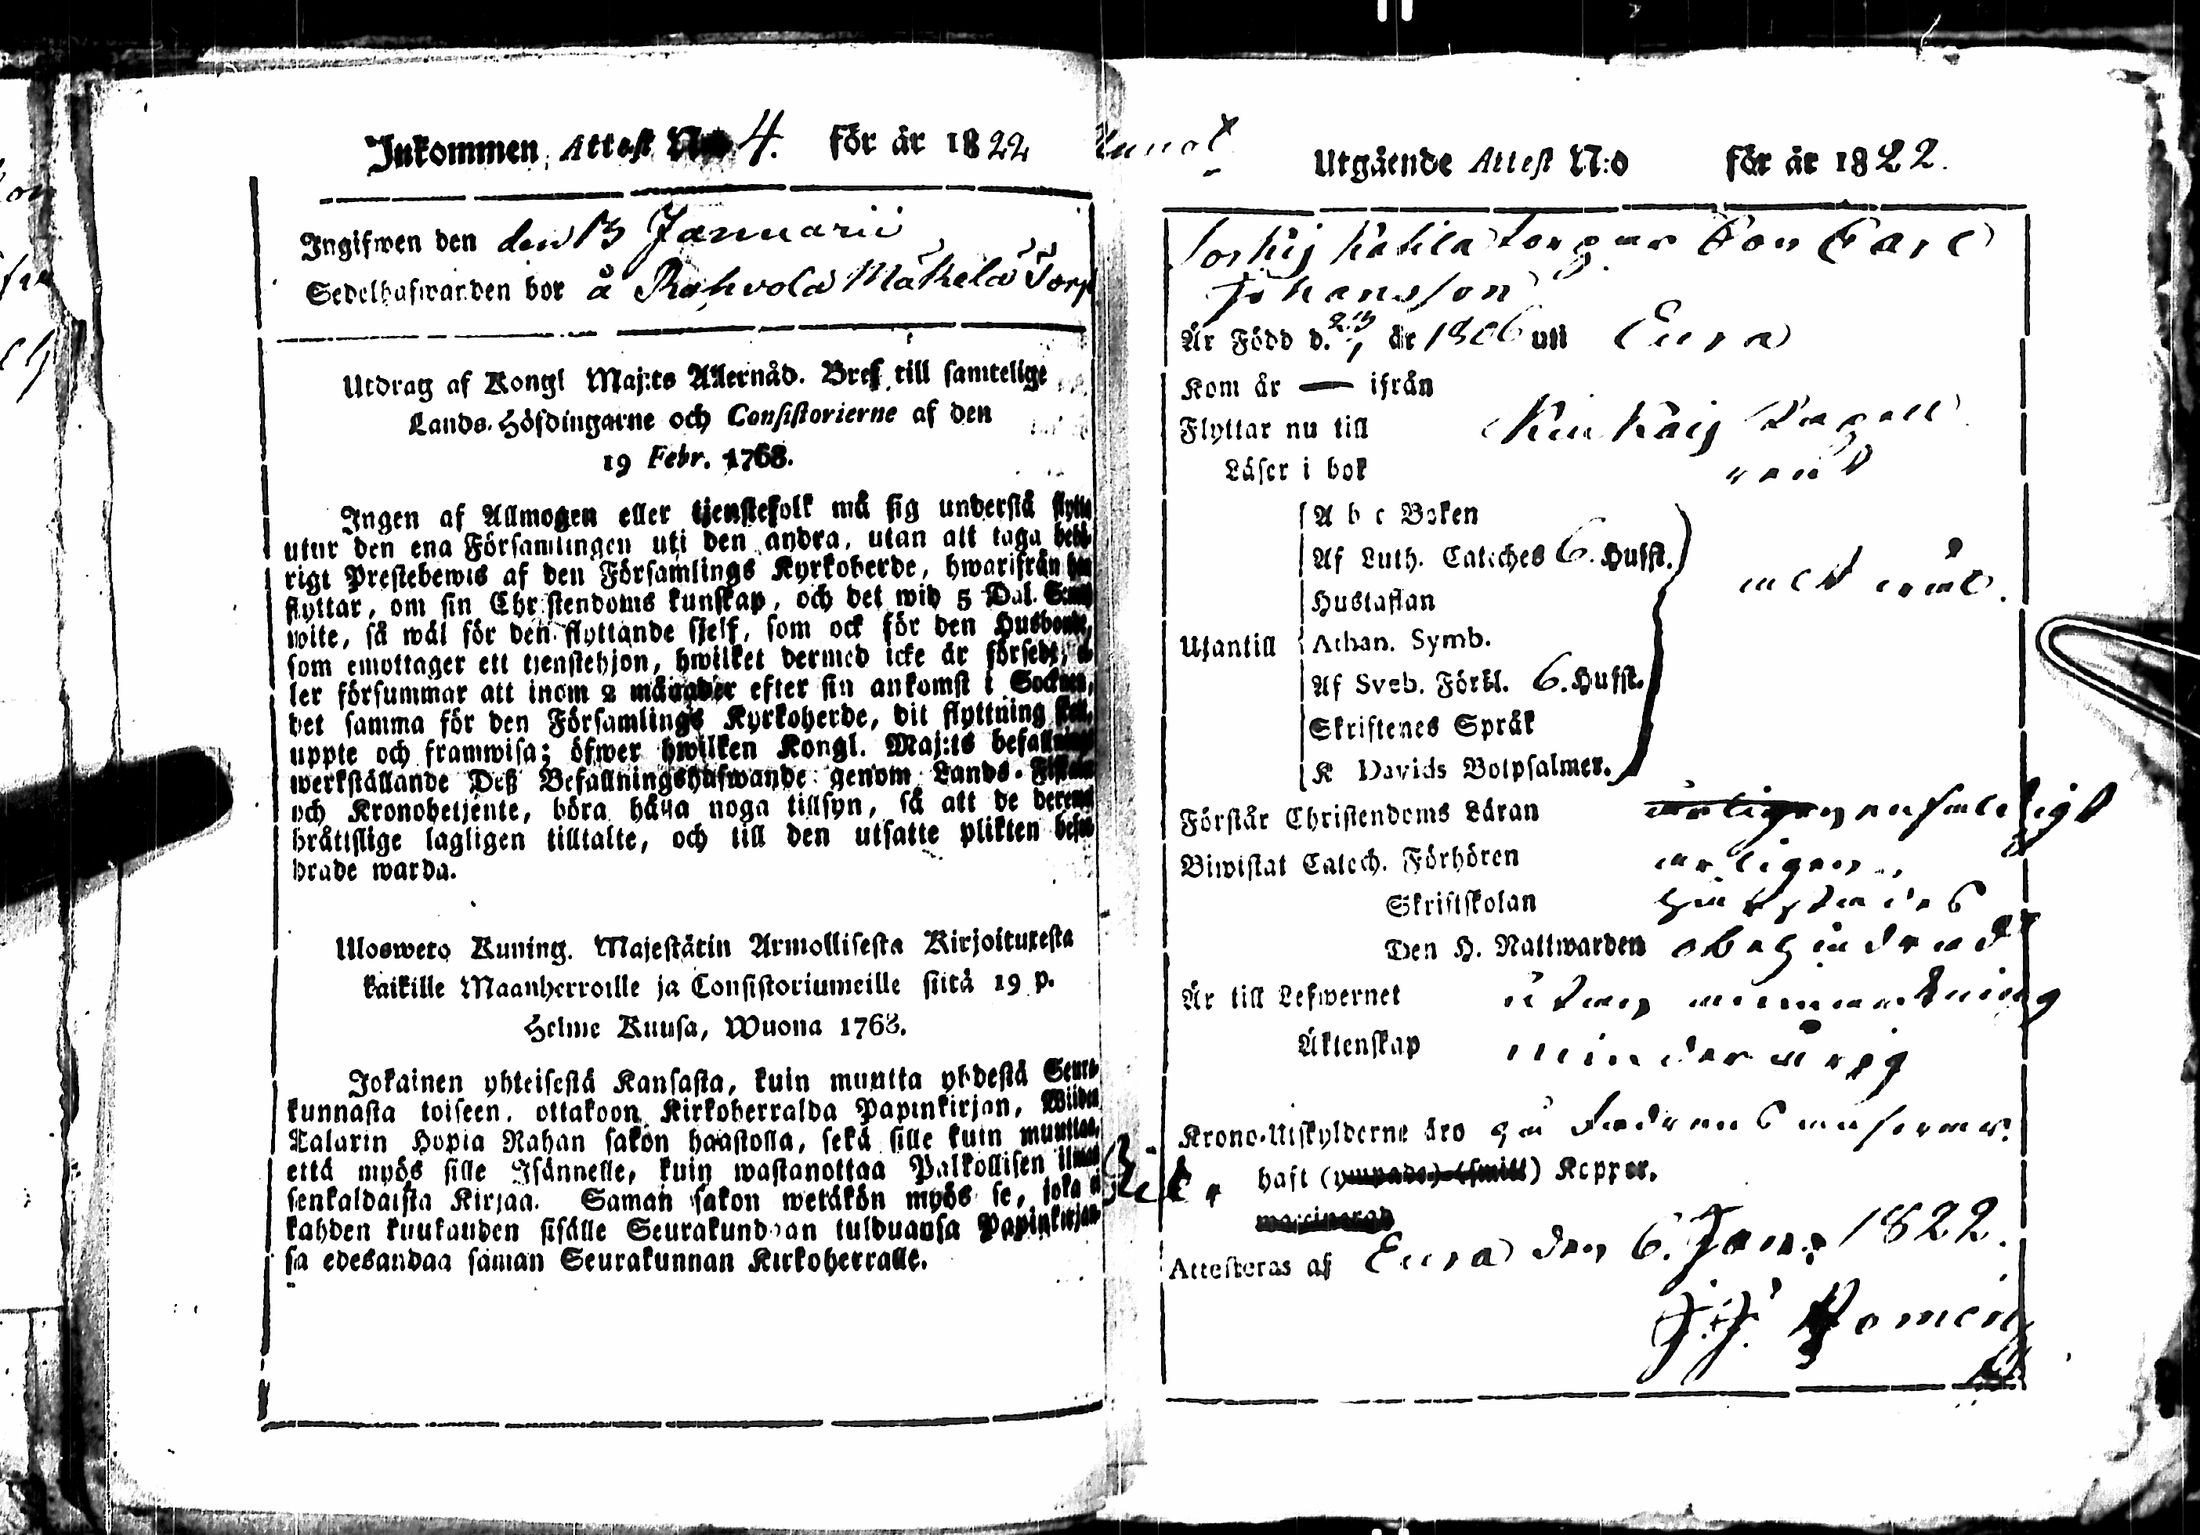 Inkommen Attest No 4. för år 1822
Ingifwen den den 13 Januarii
Sedelhafwanden bor å Rahvola Mäkelä Torp
Utdrag af Kongl Maj:ts Allernåd. Bref till samtelige
Lands-Höfdingarne och Consistorierne af den
19 Febr. 1768.
Ingen af Allmogen eller tjenstefolk må sig understå flytta
utur den ena Församlingen uti den andra, utan att taga behö-
rigt Prestebewis af den Församlings Kyrkoherde, hwarifrån han
flyttar, om sin Christendoms kunskap, och det wid 5 Dal. S:mt
wite, så wäl för den flyttande sjelf, som ock för den Husbonde,
som emottager ett tjenstehjon, hwilket dermed icke är försedt, el-
ler försummar att inom 2 månader efter sin ankomst i Socknen,
det samma för den Församlings Kyrkoherde, dit flyttning skett,
uppte och framwisa; öfwer hwilken Kongl. Maj:ts befallnings
werkställande Deß Befallningshafwande genom Lands-Fiskaler
och Kronobetjente, böra hålla noga tillsyn, så att de deremot
bråttslige lagligen tilltalte, och till den utsatte plikten befor-
drade warda.
Ulosweto Kuning. Majestätin Armollisesta Kirjoituxesta
kaikille Maanherroille ja Consistoriumeille siitä 19 p.
Helme Kuusa, Wuona 1768.
Jokainen yhteisestä Kansasta, kuin muutta yhdestä Seura-
kunnasta toiseen, ottakoon Kirkoherralda Papinkirjan, Wiiden
Talarin Hopia Rahan sakon haastolla, sekä sille kuin muuttaa,
että myös sille Isännelle, kuin wastanottaa Palkollisen ilman
senkaldaista Kirjaa. Saman sakon wetäkön myös se, joka ei
kahden kuukauden sisälle Seurakundaan tulduansa Papinkirjan-
sa edesandaa saman Seurakunnan Kirkoherralle.
Utgående Attest N:o för år 1822.
Torpar Son Carl
Johansson
Är Född d. år 1806 uti Eura
Kom år — ifrån
Flyttar nu till
Läser i bok rent
Utantill
A b c Boken
Af Luth. Catéches 6. Hufst.
Hustaflan
Athan. Symb.
Af Sveb. Förkl. 6. Hufst.
Skriftenes Språk
K Davids Botpsalmer.
Förstår Christendoms Läran
Biwistat Catech. Förhören
Skriftskolan
Den H. Nattwarden obehindrad
Är till Lefwernet utan anmärkning
Äktenskap minderårig
Krono-Utskylderne äro
haft Koppor.
Attesteras af Eura den 6. Jan: 1822.